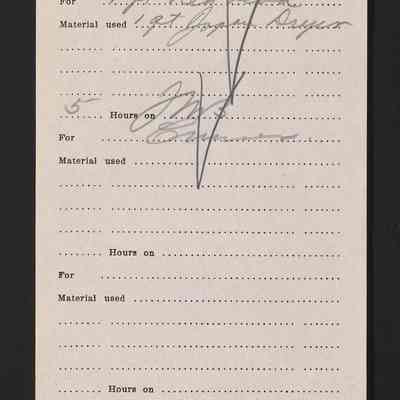 For
Material used 1 qt Japan Dryer
5 Hours on
For
Material used
Hours on
For
Material used
Hours on